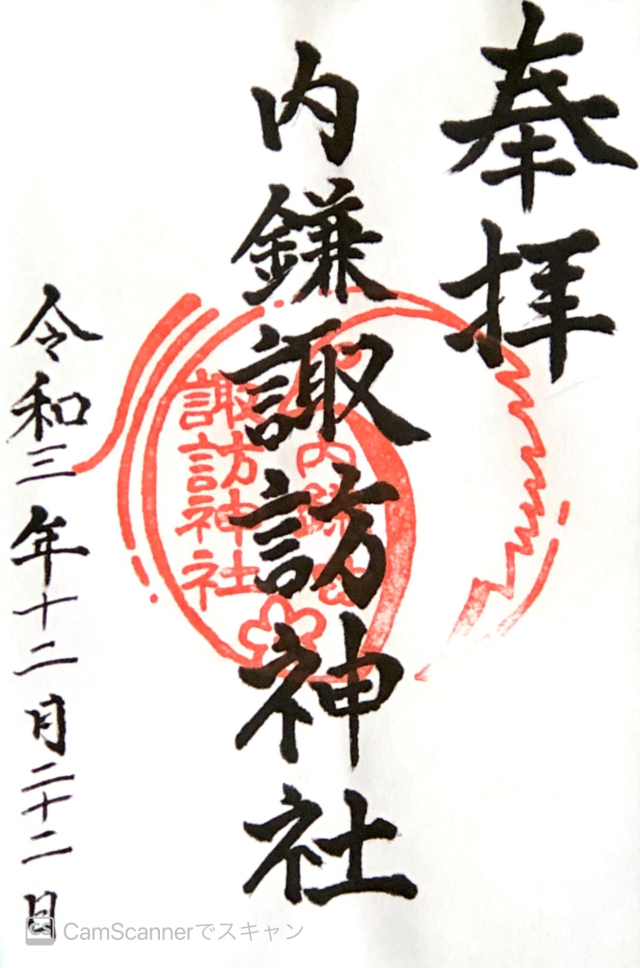 奉拝
内鎌諏訪神社
令和三年十二月二十二日
内鎌
諏訪神社
CS CamScannerでスキャン